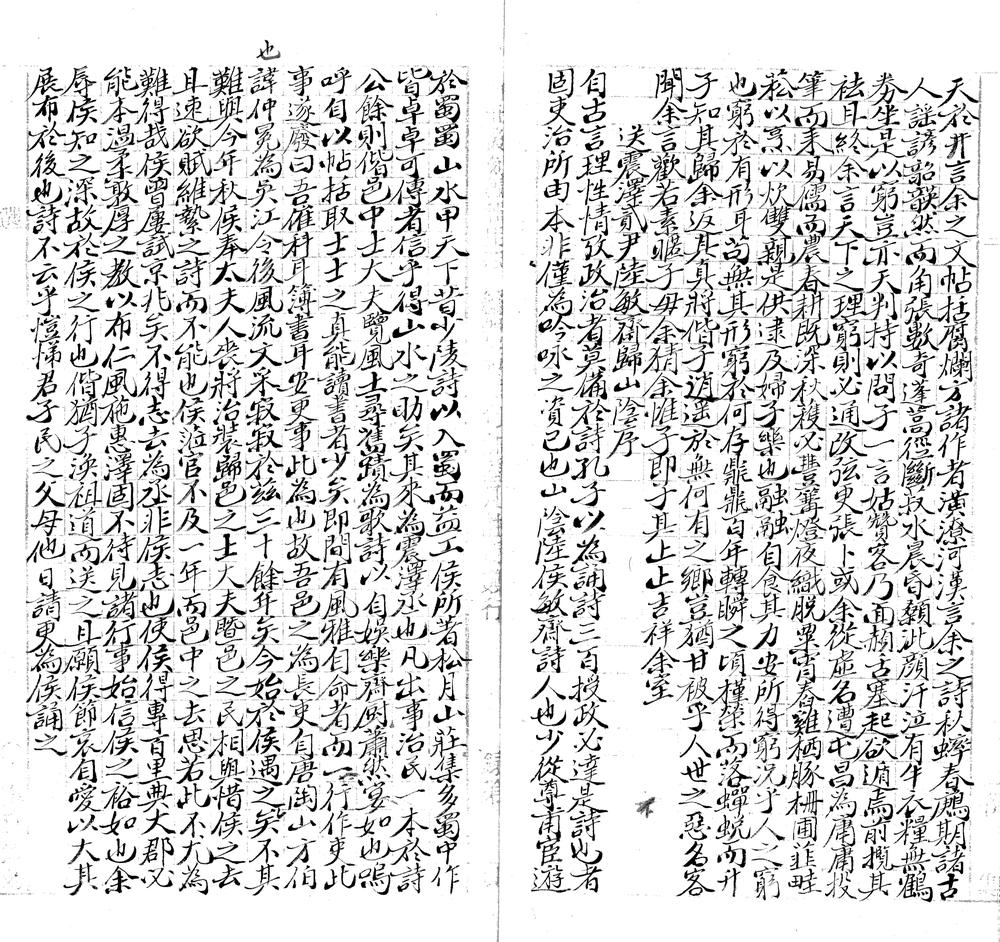 天於井言余之文帖括腐爛方諸作者潢潦河漢言余之詩秋蟀春鴂期諸古
人謡諺韶韺然而角張數奇逢蒿徑斷叔水晨昏顙泚顏汗泣有牛衣糧無鶴
券坐是以窮豈亦天判持以問子一言姑贊客乃面赬古塞起欲遁焉前攬其
袪耳終余言天下之理窮則必通改弦更張卜或余從虛名遭屯曷為庸庸投
筆而耒易儒而農春耕既深秋穫必豐篝燈夜織脫粟宵舂雞栖豚柵圃韮畦
菘以烹以炊雙親是供逮及婦子樂也融融自食其力安所得窮況乎人之窮
也窮於有形耳茍無其形窮於何存鼎鼎百年轉瞬之頃槿榮而落蟬蛻而升
子知其歸余返其真將偕子逍遥於無何有之鄉豈猶甘被乎人世之惡名客
聞余言歡若素暱子毋余猜余惟子即子其止止吉祥余室
送震澤貳尹陸敏齋歸山陰序
自古言理性情攷政治者莫備於詩孔子以為誦詩三百授政必達是詩也者
固吏治所由本非僅為吟咏之資已也山陰陸侯敏齋詩人也少從尊甫宦遊
於蜀蜀山水甲天下昔少陵詩以入蜀而益工侯所著松月山莊集多蜀中作
皆卓卓可傳者信乎得山水之助矣其來為震澤丞也凡出事治民一本於詩
公餘則偕邑中士大夫覽風土尋舊蹟為歌詩以自娛樂齋厨蕭然宴如也嗚
呼自以帖括取士士之真能讀書者少矣即間有風雅自命者而一行作吏此
事遂廢曰吾催科耳簿書耳安更事此為也故吾邑之為長吏自唐陶山方伯
諱仲冕為吳江令後風流文采寂寂於兹三十餘年矣今始於侯遇之矣不其
也
難與今年秋侯奉太夫人喪將治裝歸邑之士大夫暨邑之民相與惜侯之去
且速欲賦維縶之詩而不能也侯涖官不及一年而邑中之去思若此不尤為
難得哉侯曾屢試京兆矣不得志去為丞非侯志也使侯得專百里典大郡必
能本温柔敦厚之教以布仁風施惠澤固不待見諸行事始信侯之裕如也余
辱侯知之深故於侯之行也偕猶子涣祖道而送之且願侯節哀自愛以大其
展布於後也詩不云乎愷悌君子民之父母他日請更為侯誦之